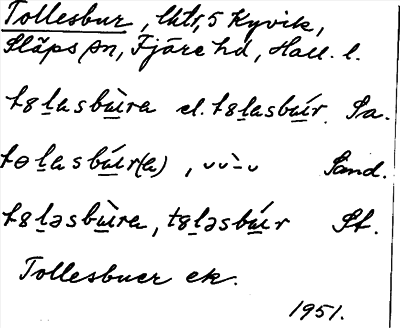 Tollesbur, lht, 5 Kyvik,
Släps sn, Fjäre hd, Hall. l.
tȣlasbùra el. tȣlasbúr. Sa.
tɵlasbúr(a), ᴗᴗ̀-ᴗ Sand.
tȣləsbùra, tȣləsbúr St.
Tollesbuer ek.
1951.